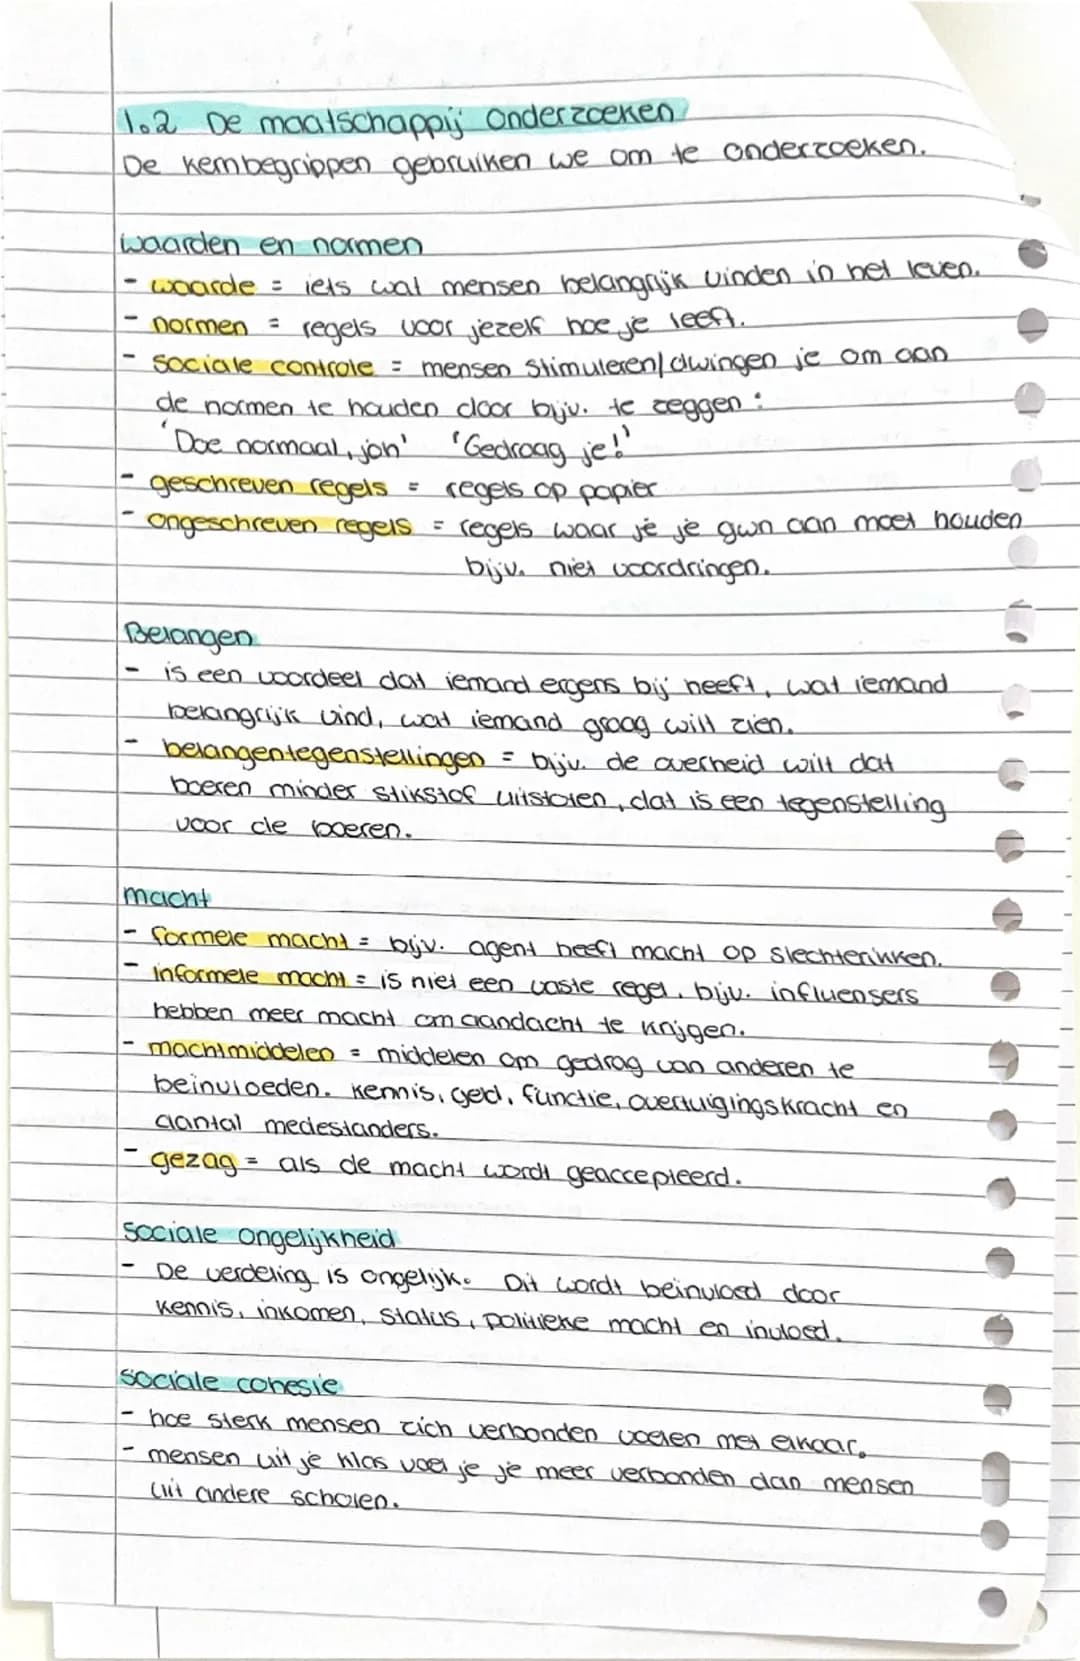 1.2 De maatschappij onderzoeken
De kernbegrippen gebruiken we om te onderzoeken.
waarden en normen
- waarde = iets wat mensen belangrijk vinden in het leven.
- normen = regels voor jezelf hoe je leeft.
- sociale controle = mensen stimuleren/dwingen je om aan
de normen te houden door bijv. te zeggen:
'Doe normaal, joh' 'Gedraag je!'
- geschreven regels = regels op papier
- ongeschreven regels = regels waar je je gwn aan moet houden
bijv. niet voordringen.
Belangen
- is een voordeel dat iemand ergens bij heeft, wat iemand
belangrijk vind, wat iemand graag wilt zien.
- belangentegenstellingen = bijv. de overheid wilt dat
boeren minder stikstof uitstoten, dat is een tegenstelling
voor de boeren.
macht
- formele macht = bijv. agent heeft macht op slechteriken.
- informele macht = is niet een vaste regel, bijv. influensers
hebben meer macht om aandacht te krijgen.
- machtmiddelen = middelen om gedrag van anderen te
beinvloeden. kennis, geld, functie, overtuigingskracht en
aantal medestanders.
- gezag = als de macht wordt geaccepteerd.
sociale ongelijkheid
- De verdeling is ongelijk. Dit wordt beinvloed door
kennis, inkomen, status, politieke macht en invloed.
sociale cohesie
- hoe sterk mensen zich verbonden voelen met elkaar.
- mensen uit je klas voel je je meer verbonden dan mensen
uit andere scholen.